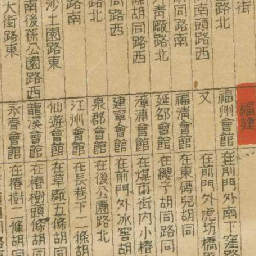 街
路北
南頭路西
同路南
胡同路西
廠路北
同路西
路北
路南
沙土園路東
南後孫公園路西
大街路東
福建
福州會館 在前門外南下窪路
又 在前門外虎坊橋路
福清會館 在東傅兒胡同
延邵會館 在纓子胡同路同
漳浦會館 在煤市街內小椿
建寧會館 在前門外冰窖胡
泉郡會館 在後公園路北
汀州會館 在長巷下二條胡同
仙遊會館 在草廠五條胡同
龍溪會館 在椿樹頭條胡同
永春會館 在椿樹二條胡同